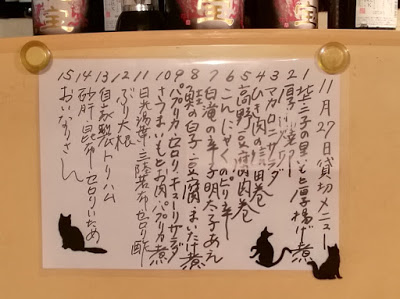 11月27日貸切メニュー
1 茎玉子の里いもと厚揚げ煮
2 厚子い焼ー
3 マカロニサラダ
4 ひき肉の信田巻
5 高野豆腐の肉巻
6 こんにゃくのピリ辛
7 白滝の辛子明太子あえ
8 鮭の白子・豆腐・まいたけ煮
9 パプリカ・セロリ・キューリサラダ
10 さつまいもとお肉・パプリカ煮
11 日光湯葉・三陸若布・セロリ酢
12 ぶり大根
13 自家製トリハム
14 砂肝・昆布・セロリいため
15 おいなりさん
宝
宝